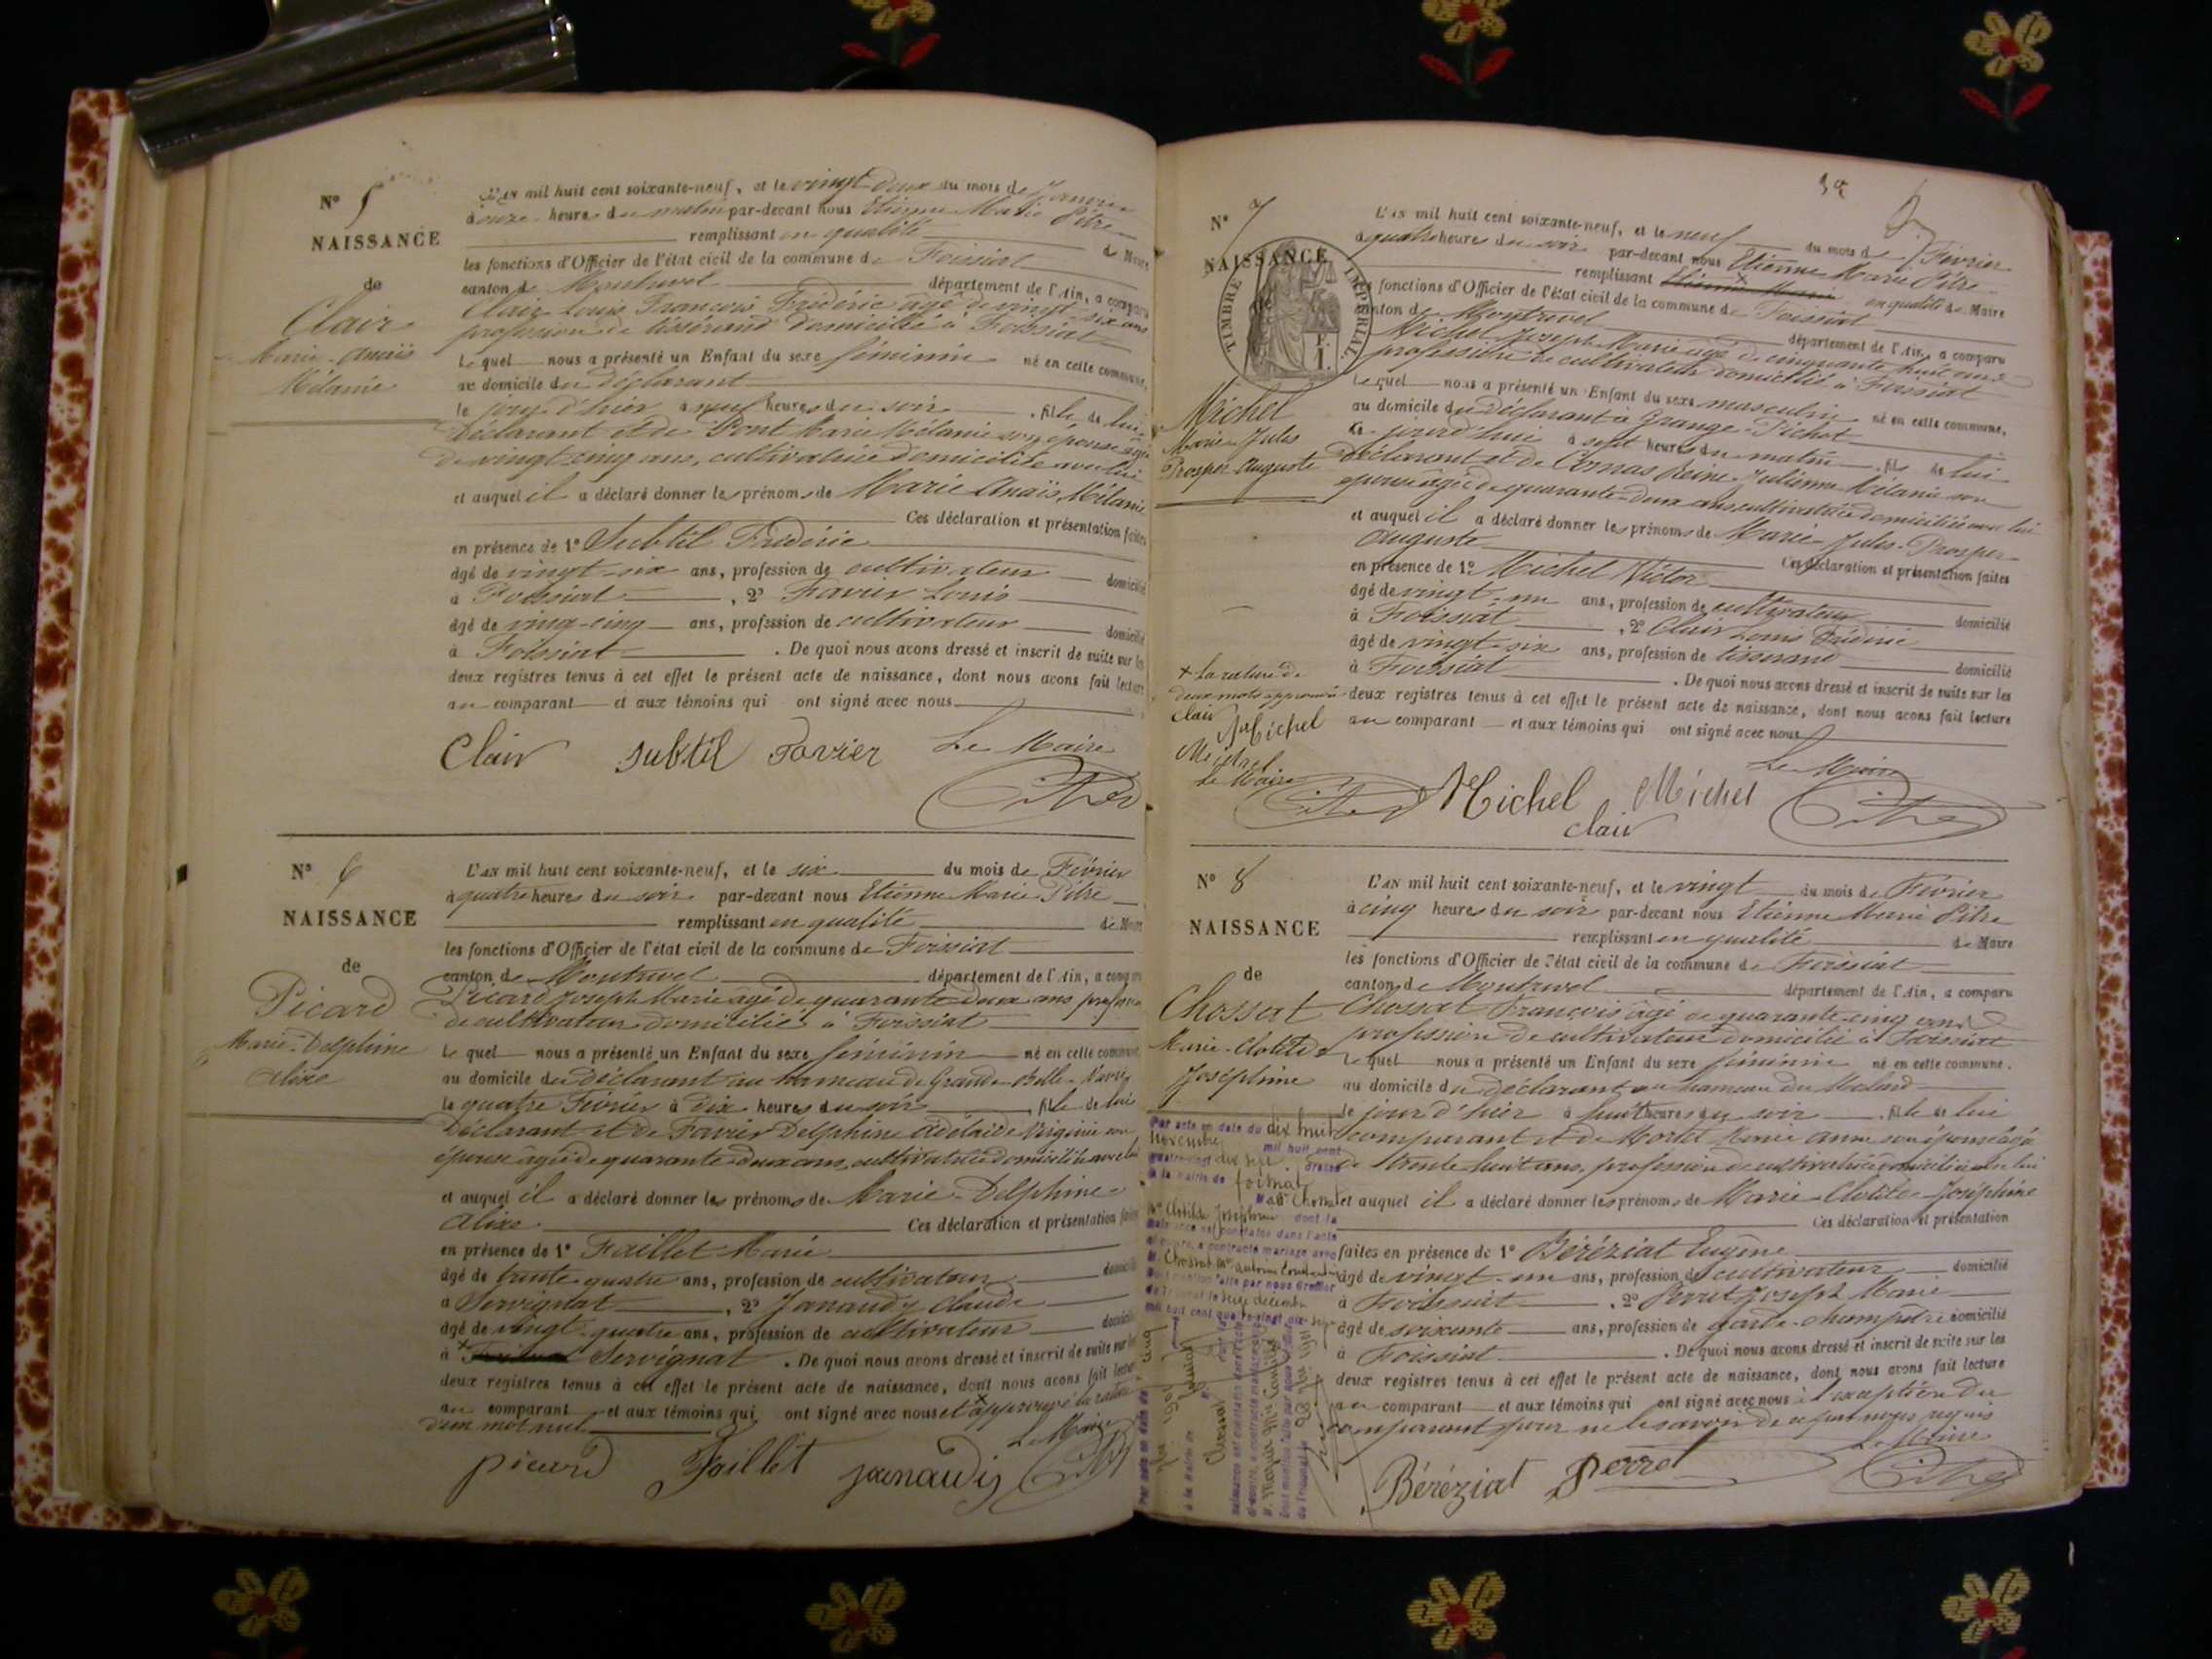 N° 5
NAISSANCE
de
Clair
Marie-Anaïs
Mélanie
L'AN mil huit cent soixante-neuf, et le vingt-deux du mois de Janvier
à onze heures du matin par-devant nous Etienne Marie Pitre
remplissant en qualité de Maire
les fonctions d'Officier de l'état civil de la commune de Foissiat
canton de Montrevel département de l'Ain, a comparu
Clair Louis François Frédéric âgé de vingt-six ans
profession de tisserand domicilié à Foissiat
Lequel nous a présenté un Enfant du sexe féminin né en cette commune,
au domicile du Déclarant
le jour d'hier à neuf heures du soir, fille de lui
Déclarant et de Pont Marie Mélanie son épouse âgée
de vingt-cinq ans, cultivatrice domiciliée avec lui
et auquel il a déclaré donner les prénoms de Marie Anaïs Mélanie
Ces déclaration et présentation faites
en présence de 1° Subtil Frédéric
âgé de vingt-six ans, profession de cultivateur domicilié
à Foissiat, 2° Favier Louis
âgé de vingt-cinq ans, profession de cultivateur domicilié
à Foissiat. De quoi nous avons dressé et inscrit de suite sur les
deux registres tenus à cet effet le présent acte de naissance, dont nous avons fait lecture
au comparant et aux témoins qui ont signé avec nous
Clair Subtil Favier Le Maire
Pitre
N° 6
NAISSANCE
de
Picard
Marie-Delphine
Alixe
L'AN mil huit cent soixante-neuf, et le six du mois de Février
à quatre heures du soir par-devant nous Etienne Marie Pitre
remplissant en qualité de Maire
les fonctions d'Officier de l'état civil de la commune de Foissiat
canton de Montrevel département de l'Ain, a comparu
Picard Joseph Marie âgé de quarante-deux ans profession
de cultivateur domicilié à Foissiat
Lequel nous a présenté un Enfant du sexe féminin né en cette commune
au domicile du Déclarant au hameau de Grande-Belle-
le quatre Février à dix heures du soir, fille de lui
Déclarant et de Favier Delphine Adélaïde Virginie son
épouse âgée de quarante-deux ans, cultivatrice domiciliée avec lui
et auquel il a déclaré donner les prénoms de Marie-Delphine-
Alixe Ces déclaration et présentation faites
en présence de 1° Faillet Marie
âgé de trente-quatre ans, profession de cultivateur domicilié
à Servignat, 2° Janaudy Claude
âgé de vingt-quatre ans, profession de cultivateur domicilié
à Servignat. De quoi nous avons dressé et inscrit de suite sur les
deux registres tenus à cet effet le présent acte de naissance, dont nous avons fait lecture
au comparant et aux témoins qui ont signé avec nous et approuvé la rature
d'un mot nul Le Maire
picard Faillet janaudy Pitre
N° 7
NAISSANCE
de
TIMBRE IMPÉRIAL
Michel
Marie-Jules
Prosper-Auguste
L'AN mil huit cent soixante-neuf, et le neuf du mois de Février
à quatre heures du soir par-devant nous Etienne Marie Pitre
remplissant Etienne Marie en qualité de Maire
les fonctions d'Officier de l'état civil de la commune de Foissiat
canton de Montrevel département de l'Ain, a comparu
Michel Joseph Marie âgé de cinquante-huit ans
profession de cultivateur domicilié à Foissiat
Lequel nous a présenté un Enfant du sexe masculin né en cette commune,
au domicile du Déclarant à Grange-Pichot
ce jourd'hui à sept heures du matin, fils de lui
Déclarant et de Cornas Reine Julienne Mélanie son
épouse âgée de quarante-deux ans cultivatrice domiciliée avec lui
et auquel il a déclaré donner les prénoms de Marie-Jules-Prosper-
Auguste Ces déclaration et présentation faites
en présence de 1° Michel Victor
âgé de vingt-un ans, profession de cultivateur domicilié
à Foissiat, 2° Clair Louis Frédéric
âgé de vingt-six ans, profession de tisserand domicilié
à Foissiat. De quoi nous avons dressé et inscrit de suite sur les
deux registres tenus à cet effet le présent acte de naissance, dont nous avons fait lecture
au comparant et aux témoins qui ont signé avec nous
+ La rature de
deux mots approuvée
Clair Michel
Michel
Le Maire
Pitre
Michel Michel Le Maire
Clair Pitre
N° 8
NAISSANCE
de
Chossat
Marie-Clotilde
Joséphine
L'AN mil huit cent soixante-neuf, et le vingt du mois de Février
à cinq heures du soir par-devant nous Etienne Marie Pitre
remplissant en qualité de Maire
les fonctions d'Officier de l'état civil de la commune de Foissiat
canton de Montrevel département de l'Ain, a comparu
Chossat François âgé de quarante-cinq ans
profession de cultivateur domicilié à Foissiat
Lequel nous a présenté un Enfant du sexe féminin né en cette commune.
au domicile du Déclarant au hameau du
le jour d'hier à huit heures du soir, fille de lui
comparant et de Mortel Marie Anne son épouse âgée
de trente huit ans, profession de cultivatrice domiciliée avec lui
et auquel il a déclaré donner les prénoms de Marie-Clotilde-Joséphine
Ces déclaration et présentation
faites en présence de 1° Béréziat Eugène
âgé de vingt-un ans, profession de cultivateur domicilié
à Foissiat, 2° Perret Joseph Marie
âgé de soixante ans, profession de garde-champêtre domicilié
à Foissiat. De quoi nous avons dressé et inscrit de suite sur les
deux registres tenus à cet effet le présent acte de naissance, dont nous avons fait lecture
au comparant et aux témoins qui ont signé avec nous à l'exception du
comparant pour ne le savoir de ce par nous requis
Le Maire
Béréziat Perret Pitre
Par acte en date du dix huit
novembre mil huit cent
quatre-vingt dix sept dressé
à la mairie de foissiat